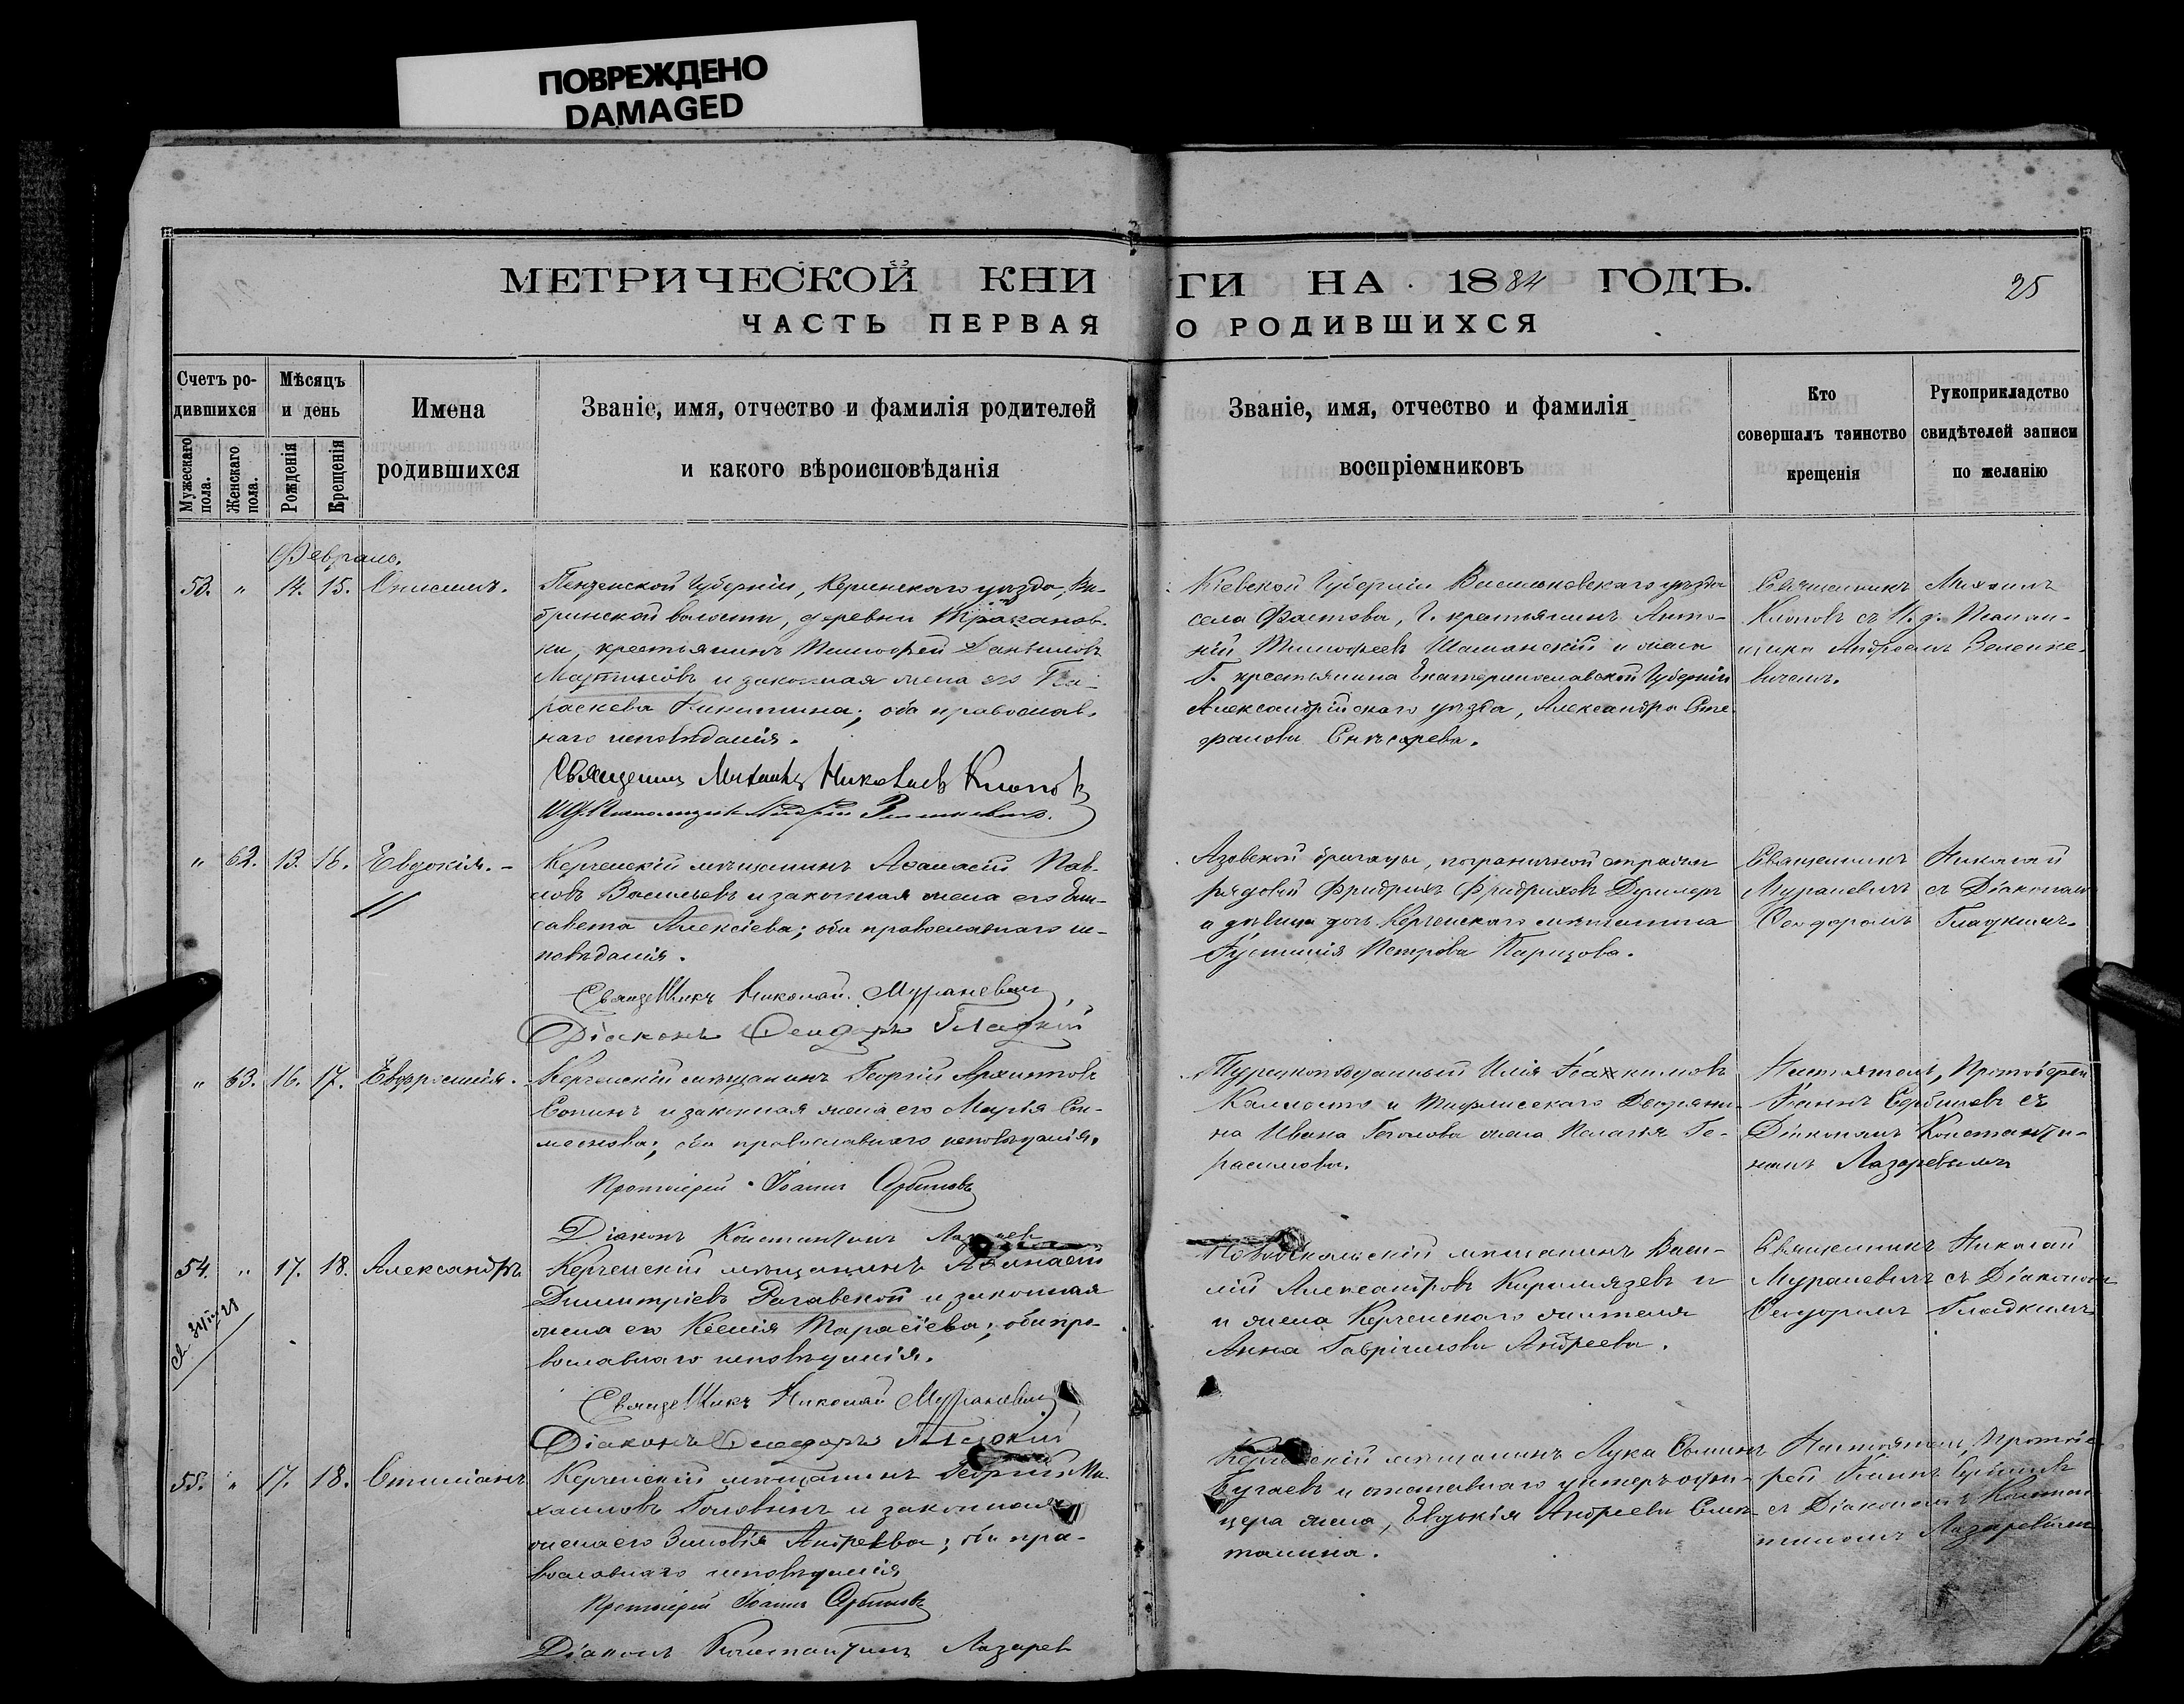 ПОВРЕЖДЕНО
DAMAGED
МЕТРИЧЕСКОЙ КНИ
ГИ НА 1884 ГОДЪ.
25
ЧАСТЬ ПЕРВАЯ
О РОДИВШИХСЯ
Счетъ ро-
дившихся
Мужескаго пола.
Женскаго пола.
Мѣсяцъ
и день
Рожденія
Крещенія
Имена
родившихся
Званіе, имя, отчество и фамилія родителей
и какого вѣроисповѣданія
Званіе, имя, отчество и фамилія
воспріемниковъ
Кто
совершалъ таинство
крещенія
Рукоприкладство
свидѣтелей записи
по желанію
Февраль.
53. " 14. 15. Онисимъ.
Пензенской Губерніи, Керенскаго уѣзда,
волости, деревни
ки, крестьянинъ Тимофей Даніиловъ
Мартиновъ и законная жена его Па-
раскева Никитина; оба православ-
наго исповѣданія.
Священникъ Михаилъ Николаевъ Клоповъ
И. Д. Псаломщика Андрей Зеленкевичъ.
Кіевской Губерніи Васильковскаго уѣзда
села Фастова, Г. крестьянинъ Анто-
ній Тимофеевъ Шаманскій и жена
Г. крестьянина Екатеринославской Губерніи
Александрійскаго уѣзда, Александра Сте-
фанова Снѣсарева.
Священникъ Михаилъ
Клоповъ съ И. д. Псалом-
щика Андреемъ Зеленке-
вичемъ.
" 62. 13. 16. Евдокія.-
Керченскій мѣщанинъ Аѳанасій Пав-
ловъ Васильевъ и законная жена его Ели-
савета Алексіева; оба православнаго ис-
повѣданія.
Священникъ Николай Мураневичъ
Діаконъ Ѳеодоръ Гладкій
Азовской бригады, пограничной стражи
рядовой Фридрихъ Фридриховъ
и дѣвица дочь Керченскаго мѣщанина
Іустинія Петрова
Священникъ Николай
Мураневичъ съ Діакономъ
Ѳеодоромъ Гладкимъ.
" 63. 16. 17. Евфросинія.
Керченскій мѣщанинъ Георгій Архиповъ
Сопинъ и законная жена его Марія Си-
меонова; оба православнаго исповѣданія.
Протоіерей Іоаннъ Сербиновъ
Діаконъ Константинъ Лазаревъ
Турецкоподданный Илія Іоакимовъ
и Тифлисскаго Дворяни-
на Ивана жена Пелагія Ге-
расимова.
Настоятель, Протоіерей
Іоаннъ Сербиновъ съ
Діакономъ Константи-
номъ Лазаревымъ
54. " 17. 18. Александръ
Керченскій мѣщанинъ Аѳанасій
Димитріевъ и законная
жена его Ксенія Тарасіева; оба пра-
вославнаго исповѣданія.
Священникъ Николай Мураневичъ
Діаконъ Ѳеодоръ Гладкій
мѣщанинъ Васи-
лій Александровъ и
и жена Керченскаго жителя
Анна Гавріилова Андреева.
Священникъ Николай
Мураневичъ съ Діакономъ
Ѳеодоромъ Гладкимъ
55. " 17. 18. Стиліанъ
Керченскій мѣщанинъ Георгій Ми-
хаиловъ Головкинъ и законная
жена его Зиновія Андреева; оба пра-
вославнаго исповѣданія
Протоіерей Іоаннъ Сербиновъ
Діаконъ Константинъ Лазаревъ
Керченскій мѣщанинъ Лука
Бугаевъ и отставнаго унтеръ-офи-
цера жена, Евдокія Андреева
Настоятель, Протоіе-
рей Іоаннъ Сербиновъ
съ Діакономъ Констан-
тиномъ Лазаревымъ